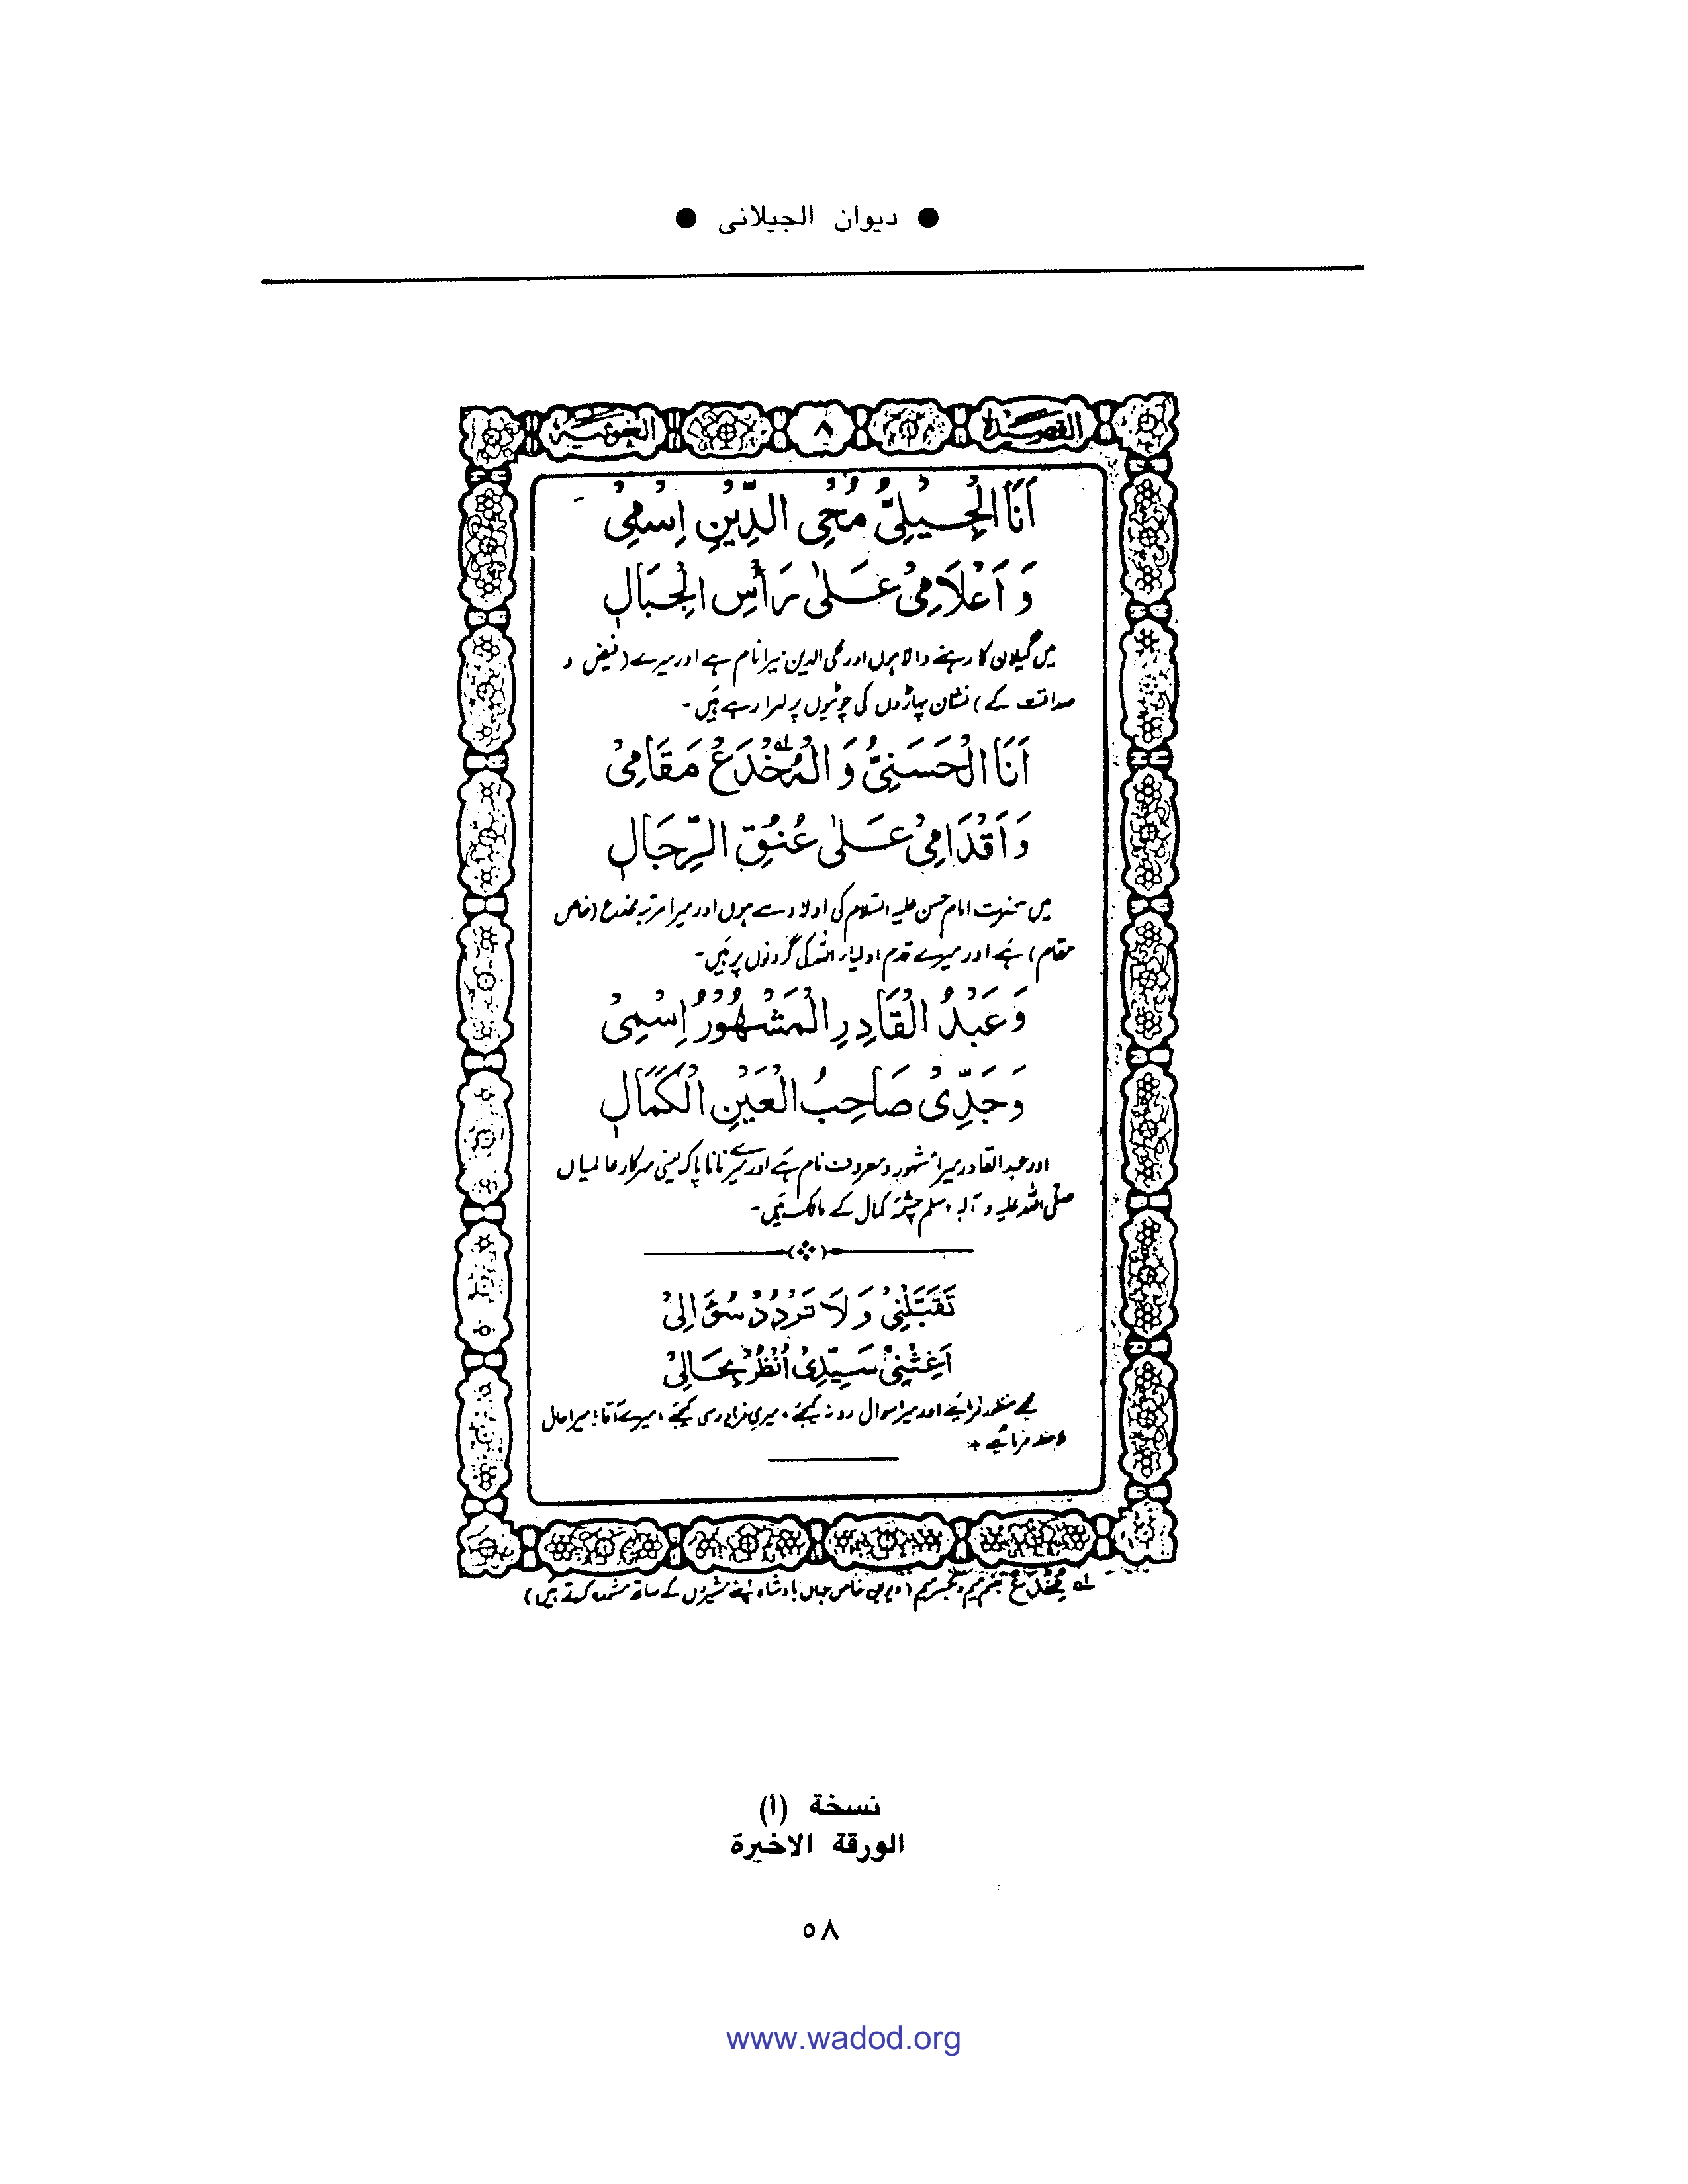 ● ديوان الجيلاني ●
القصيدة ٨ الغوثية
اَنَا الْجِيْلِيُّ مُحْيِ الدِّيْنِ اِسْمِيْ
وَ اَعْلَامِيْ عَلٰى رَأْسِ الْجِبَالِ
میں گیلان کا رہنے والا ہوں اور محی الدین میرا نام ہے اور میرے (فیض و
صداقت کے) نشان پہاڑوں کی چوٹیوں پر لہرا رہے ہیں۔
اَنَا الْحَسَنِيُّ وَ الْمُخْدَعُ لہ مَقَامِيْ
وَ اَقْدَامِيْ عَلٰى عُنُقِ الرِّجَالِ
میں حضرت امام حسن علیہ السلام کی اولاد سے ہوں اور میرا مرتبہ مخدع (خاص
مقام) ہے اور میرے قدم اولیاء اللہ کی گردنوں پر ہیں۔
وَ عَبْدُ الْقَادِرِ الْمَشْهُوْرُ اِسْمِيْ
وَ جَدِّيْ صَاحِبُ الْعَيْنِ الْكَمَالِ
اور عبد القادر میرا مشہور و معروف نام ہے اور میرے نانا پاک یعنی سرکار عالمیاں
صلی اللہ علیہ و آلہ وسلم چشمۂ کمال کے مالک ہیں۔
تَقَبَّلْنِيْ وَ لَا تَرْدُدْ سُؤَالِيْ
اَغِثْنِيْ سَيِّدِيْ اُنْظُرْ بِحَالِيْ
مجھے منظور فرمائیے اور میرا سوال رد نہ کیجئے، میری فریاد رسی کیجئے، میرے آقا! میرا حال
ملاحظہ فرمائیے
لہ مخدع بضم میم و بکسر میم (وہ خاص جہاں بادشاہ اپنے مشیروں کے ساتھ کرتے ہیں)
نسخة (أ)
الورقة الاخيرة
٥٨
www.wadod.org